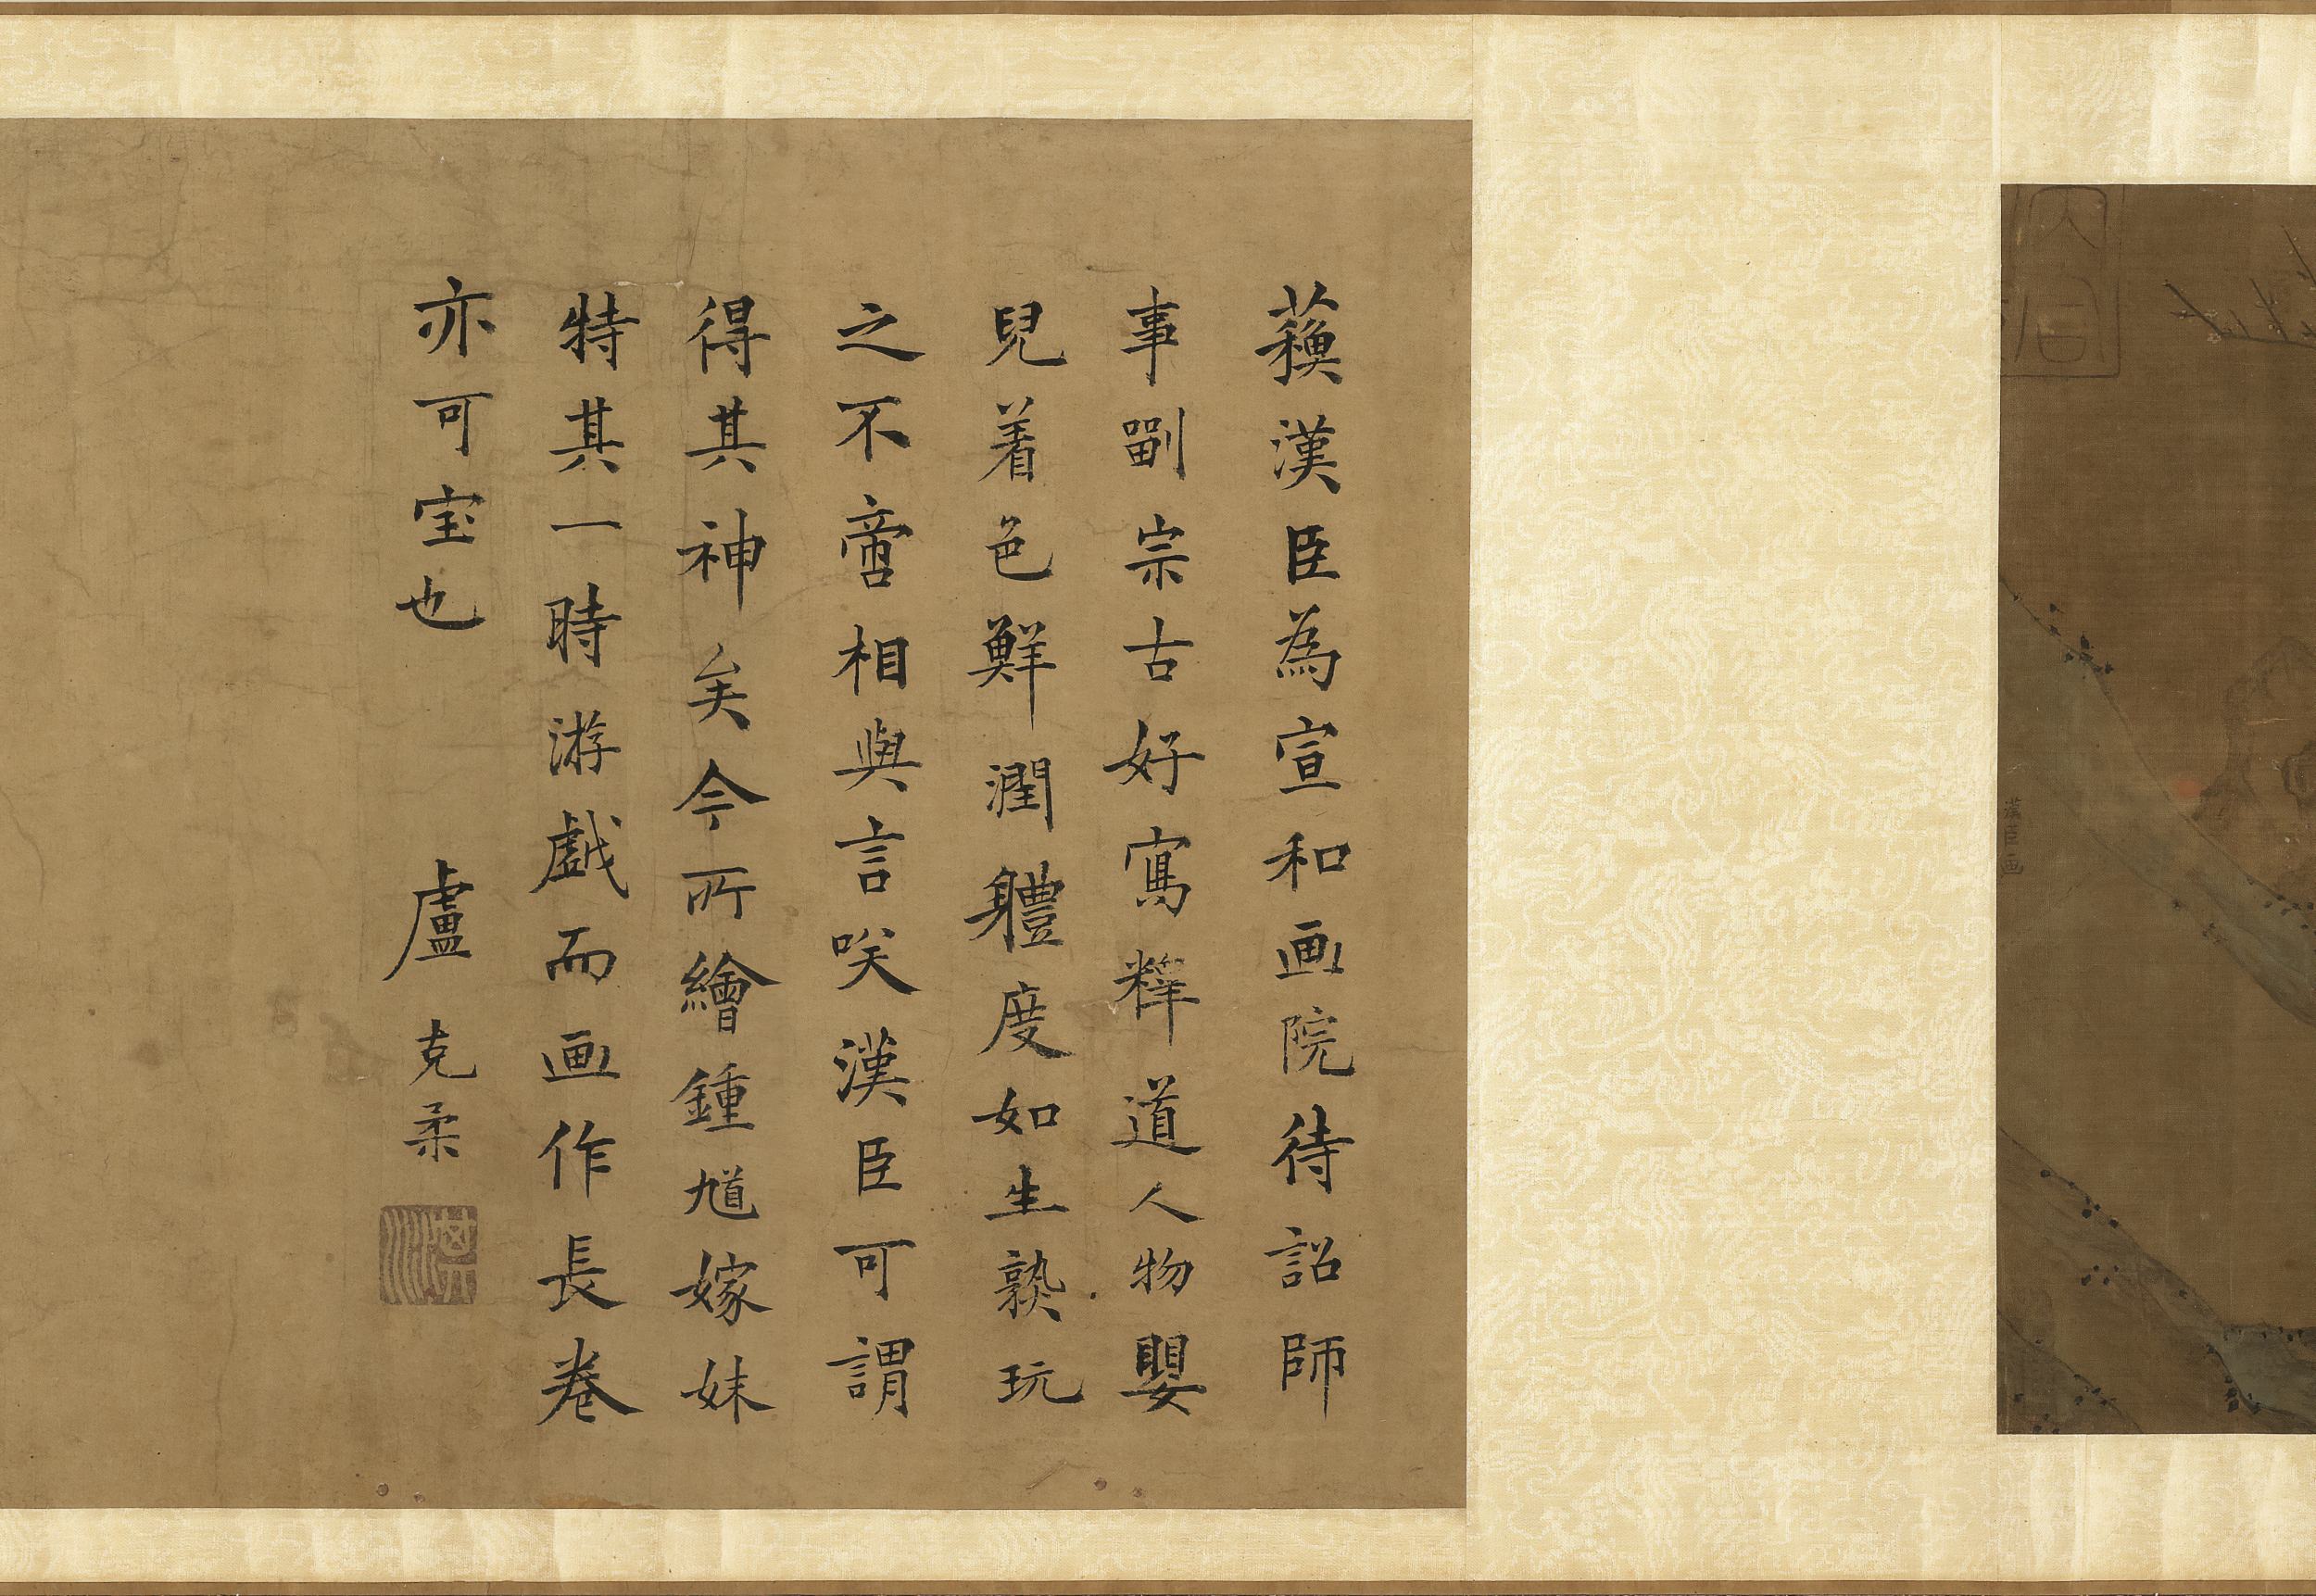 漢臣画
蘓漢臣為宣和画院待詔師
事劉宗古好寫釋道人物嬰
兒着色鮮潤軆度如生熟玩
之不啻相與言咲漢臣可謂
得其神矣今所繪鍾馗嫁妹
特其一時游戯而画作長卷
亦可宝也
盧克柔